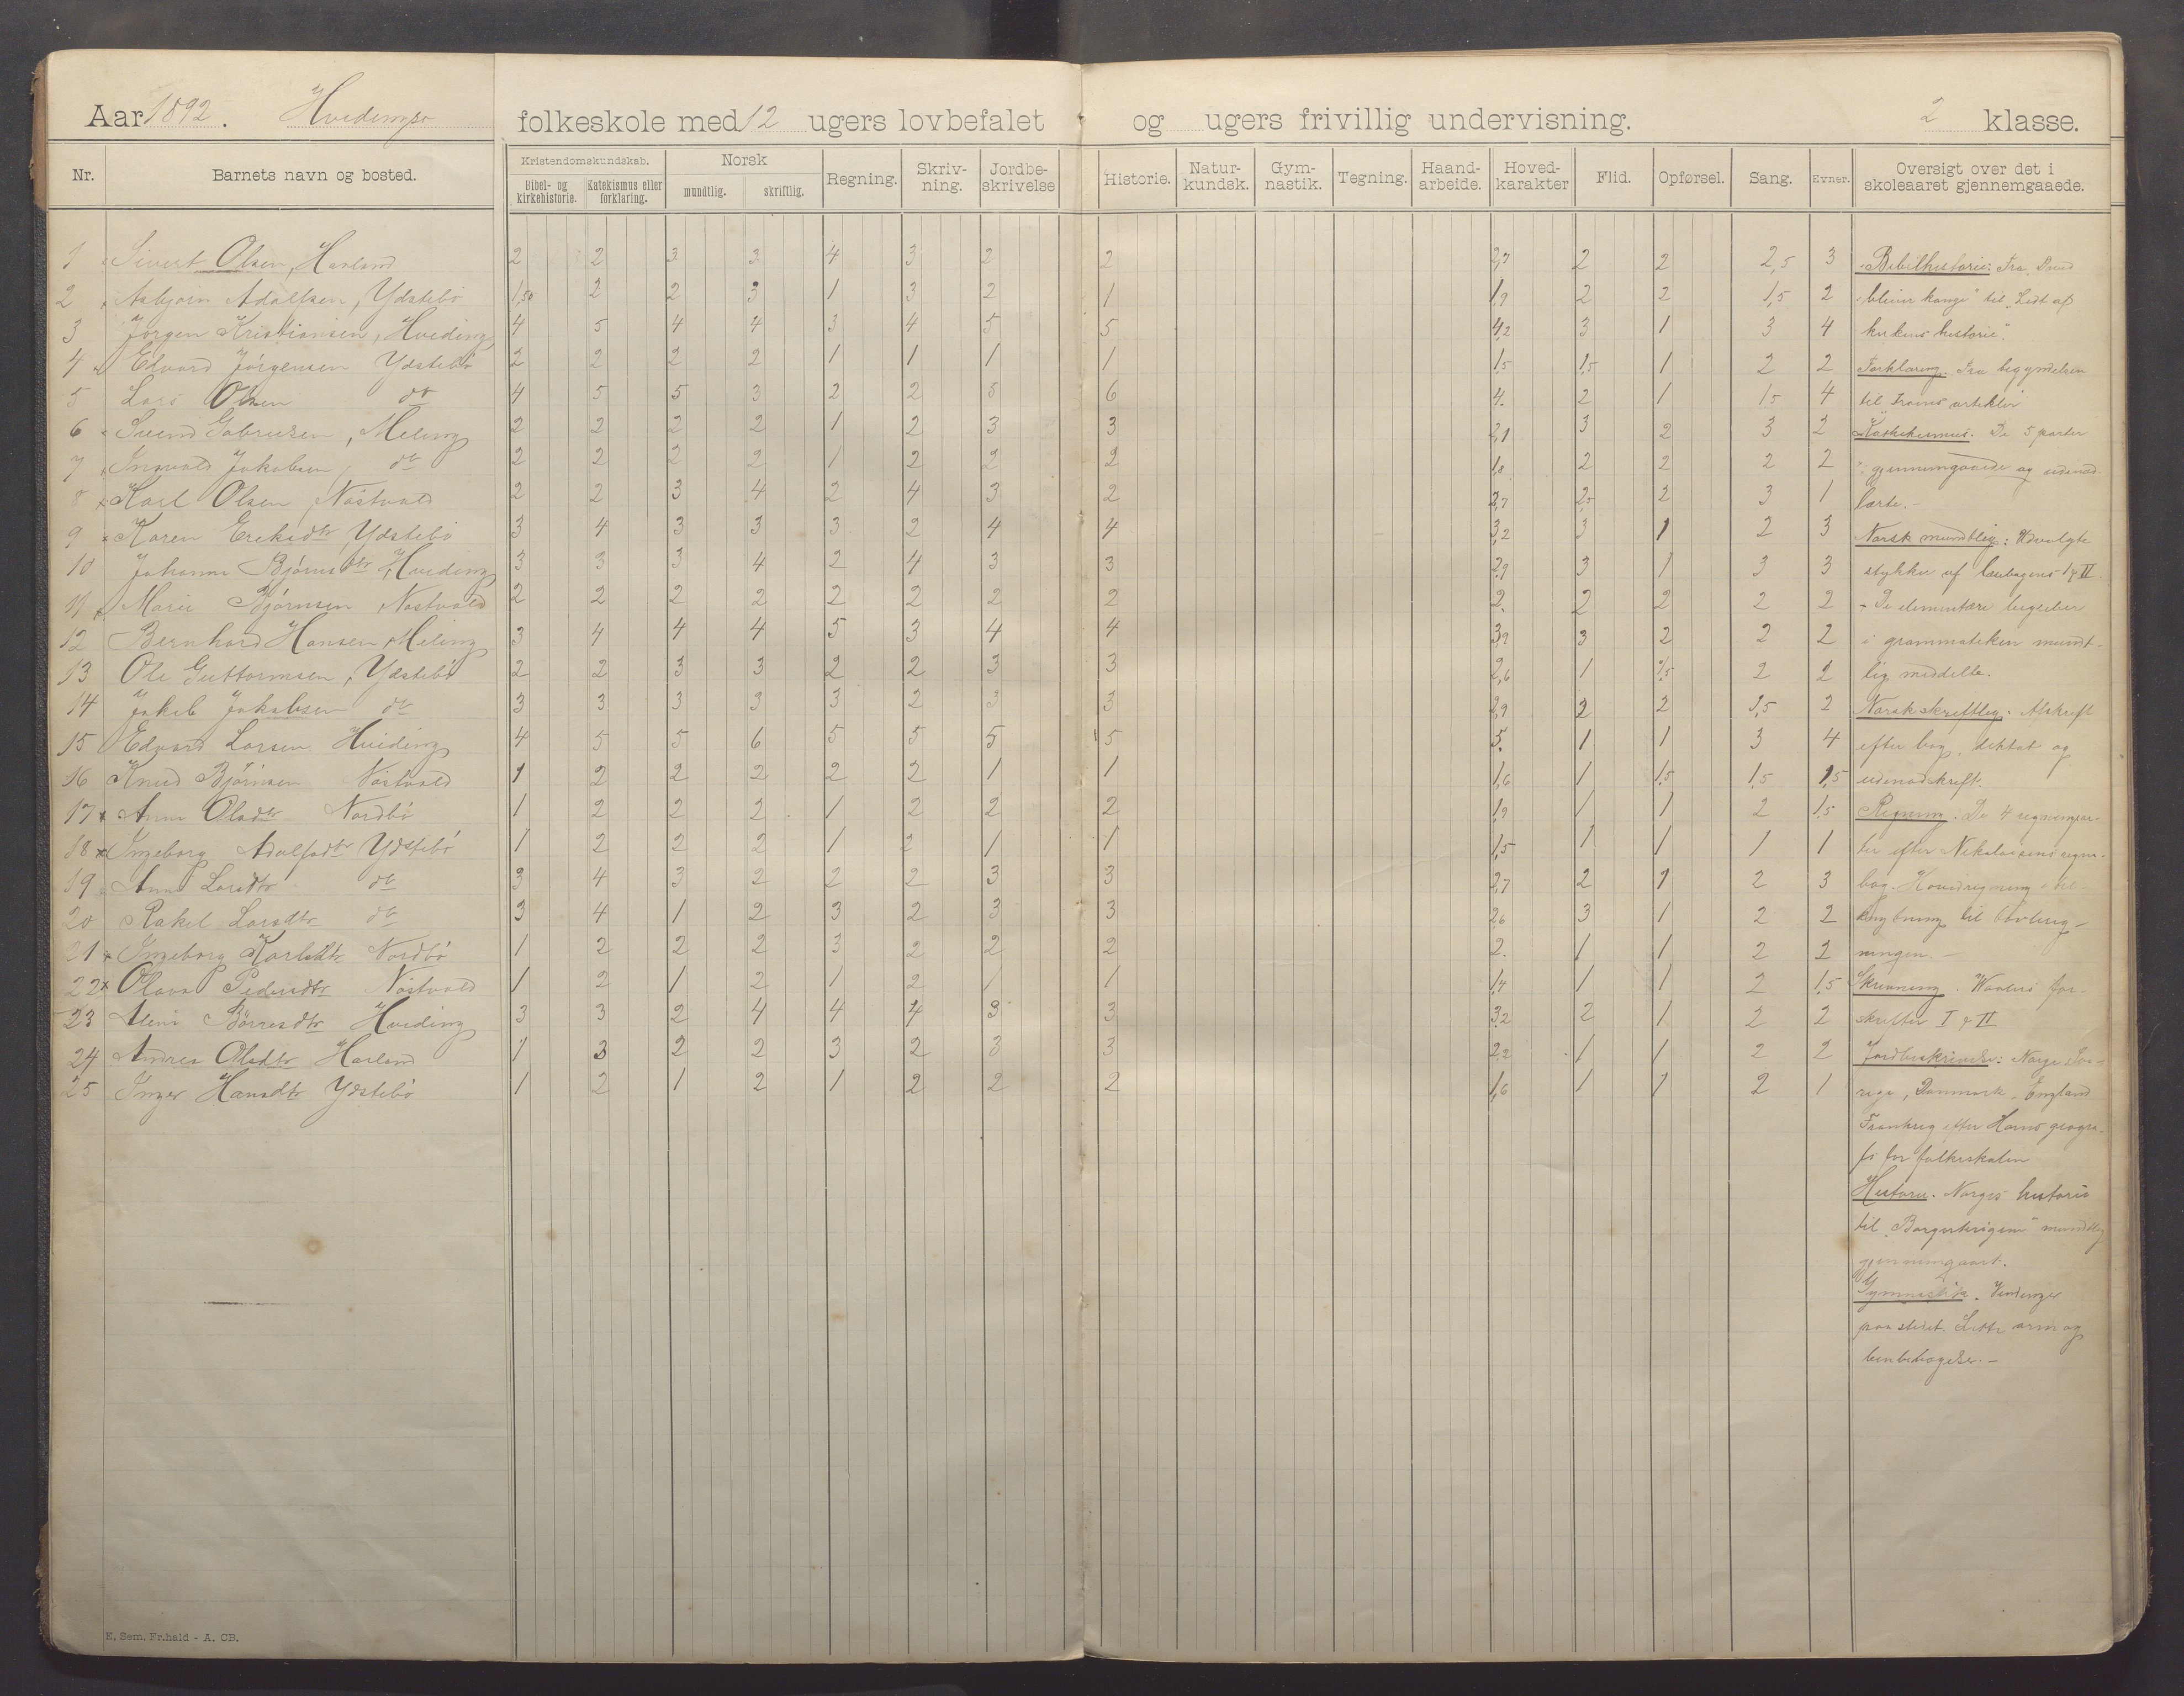 Aar 1892. Hvidingsø folkeskole med 12 ugers lovbefalet og ugers frivillig undervisning. 2 klasse.
Nr. Barnets navn og bosted. Kristendomskundskab. Bibel- og kirkehistorie. Katekismus eller forklaring. Norsk mundtlig. skriftlig. Regning. Skriv-ning. Jordbe-skrivelse Historie. Natur-kundsk. Gym-nastik. Tegning. Haand-arbeide. Hoved-karakter Flid. Opførsel. Sang. Evner. Oversigt over det i skoleaaret gjennemgaaede.
1 Sivert Olsen, Harland 2 2 3 3 4 3 2 2 2,7 2 2 2,5 3 Bibelhistorie: Fra David
2 Asbjørn Adolfsen, Ydstebø 1,50 2 2 3 1 3 2 1 1,9 2 2 1,5 2 bliver konge" til "Lidt af
3 Jørgen Kristiansen, Hviding 4 5 4 4 3 4 5 5 4,2 3 1 3 4 kirkens historie".
4 Edvard Jørgensen Ydstebø 2 2 2 2 1 1 1 1 1,5 1,5 1 2 2 Forklaring. Fra begyndelsen
5 Lars Olsen do 4 5 5 3 2 2 5 6 4. 2 1 1,5 4 til troens artikler
6 Svend Gabrielsen, Meling 2 2 2 2 1 2 3 3 2,1 3 2 3 2 Katekismus. De 5 parter
7 Ingvald Jakobsen, do 2 2 2 2 1 2 2 2 1,8 2 2 2 2 gjennemgaaede og udenad-
8 Karl Olsen, Nåstvold 2 2 3 4 2 4 3 2 2,7 2,5 2 3 1 lærte. -
9 Karen Eriksdtr Ydstebø 3 4 3 3 3 2 4 4 3,2 3 1 2 3 Norsk mundtlig: Udvalgte
10 Johanne Bjørnsdtr, Hviding 3 3 3 4 2 4 3 3 2,9 3 1 3 3 stykker af læsebogens I & II.
11 Marie Bjørnsen Nåstvold 2 2 2 2 2 2 2 2 2. 2 2 2 2 - De elementære begreber
12 Bernhard Hansen, Meling 3 4 4 4 5 3 4 4 3,9 3 2 2 2 i grammatiken mundt-
13 Ole Guttormsen, Ydstebø 2 2 3 3 2 2 3 3 2,6 1 1,5 2 2 lig meddelte.
14 Jakob Jakobsen do 3 3 3 3 3 2 3 3 2,9 2 2 1,5 2 Norsk skriftlig. Afskrift
15 Edvard Larsen Hviding 4 5 5 6 5 5 5 5 5. 1 1 3 4 efter bog, diktat og
16 Knud Bjørnsen Nåstvold 1 2 2 2 2 2 1 1 1,6 1 1,5 1,5 1,5 udenadskrift.
17 Anna Olsdtr Nordbø 1 2 2 2 1 2 2 2 1,9 1 1 2 1,5 Regning. De 4 regningsar-
18 Ingeborg Adolfsdtr Ydstebø 1 2 2 2 1 2 1 1 1,5 1 1 1 1 ter efter Nikolaisens regne-
19 Anna Larsdtr do 3 4 3 2 2 2 3 3 2,7 2 1 2 3 bog. Hovedregning i til-
20 Rakel Larsdtr do 3 4 1 2 3 2 3 3 2,6 3 1 2 2 knytning til tavlereg-
21 Ingeborg Karlsdtr Nordbø 1 2 2 2 3 2 2 2 2. 1 1 2 2 ningen. -
22 Olava Pedersdtr Nåstvold 1 2 1 2 1 2 1 1 1,4 1 1 2 1,5 Skrivning. for-
23 Børresdtr Hviding 3 3 2 4 4 4 3 3 3,2 2 1 2 2 skrifter I & II
24 Andrea Olsdtr Harland 1 3 2 2 3 2 3 3 2,2 1 1 2 2 Jordbeskrivelse: Norge, Sve-
25 Inger Hansdtr Ydstebø 1 2 1 2 1 2 2 2 1,6 1 1 2 1 rige, Danmark, England
Frankrig efter Horns geogra-
fi for folkeskolen
Historie. Norges historie
til "Borgerkrigene" mundtlig
gjennemgaaet.
Gymnastik. Vendinger
paa stedet. Lette arm og
benbevægelser. -
E. Sem, Fr.hald - A. CB.